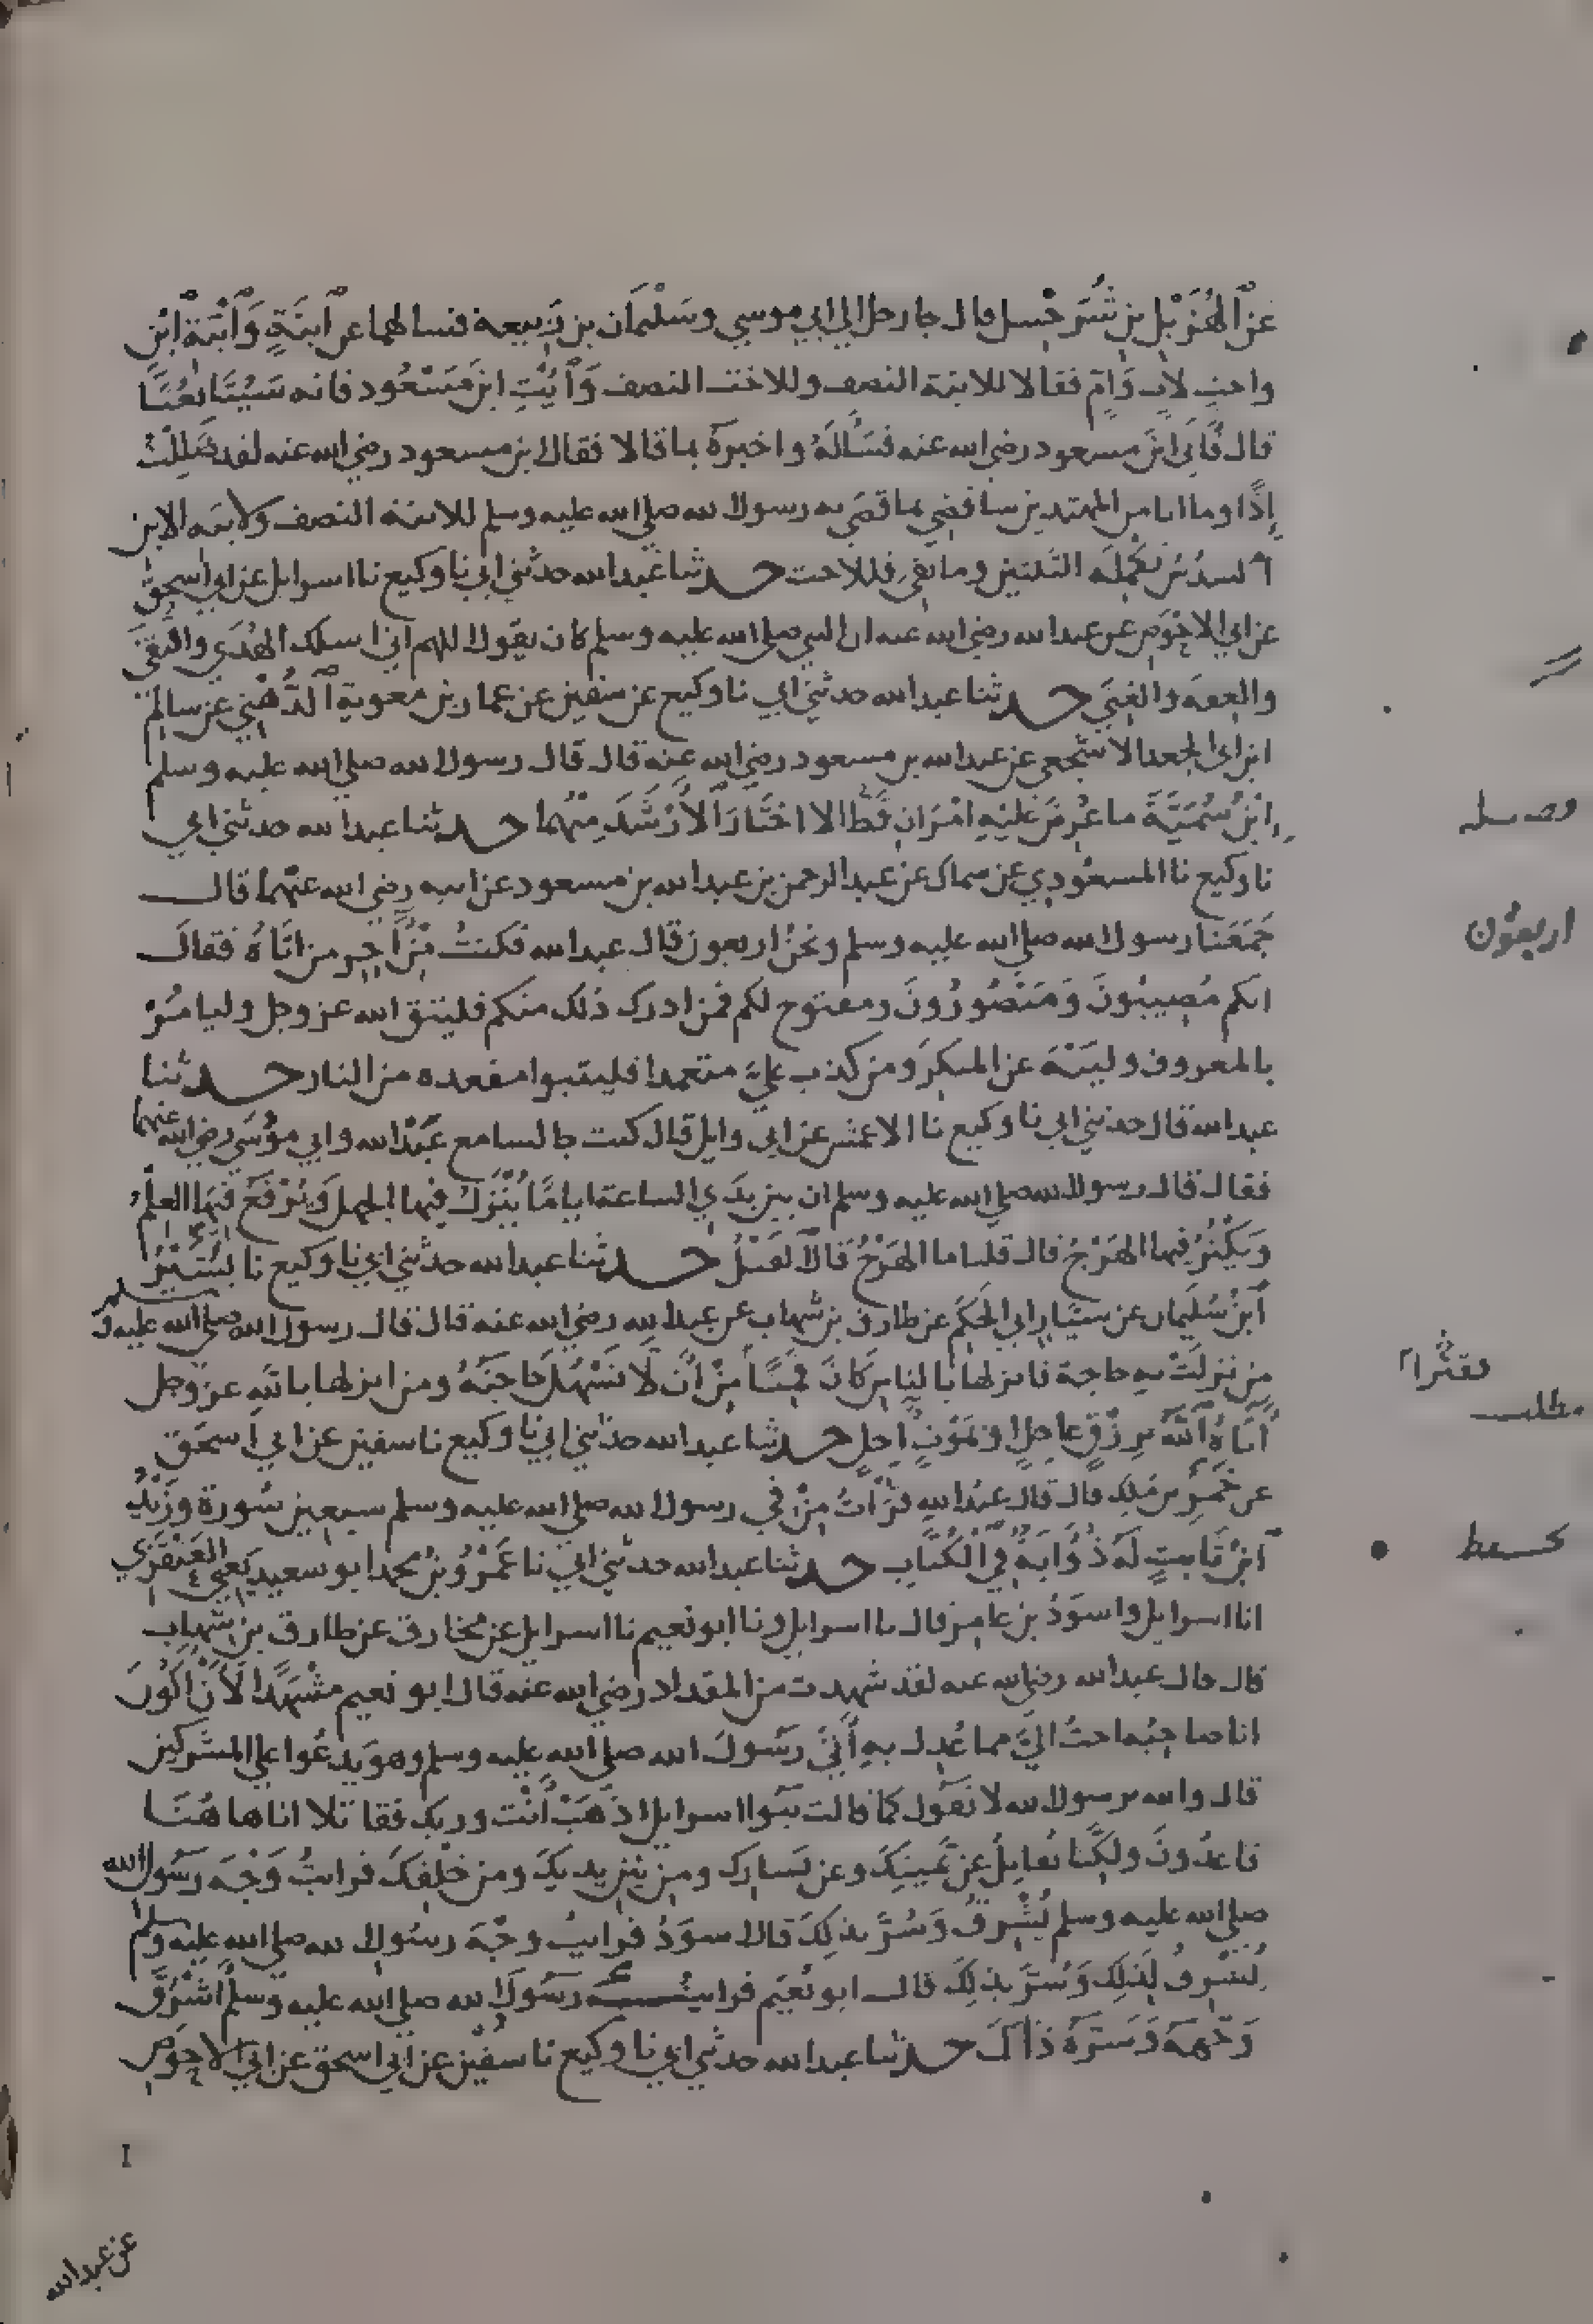 عن الهزيل بن شرحبيل قال جا رجل الي ابي موسي وسليمان بن ربيعة فسالهما عن ابنة وابنة ابن
واخت لاب وام فقالا للابنة النصف وللاخت النصف وأيت ابن مسعود فانه سيتابعنا
قال فاتى ابن مسعود رضي الله عنه فسأله واخبره بما قالا فقال ابن مسعود رضي الله عنه لقد ضللت
إذا وما انا من المهتدين سا قضي بما قضى به رسول الله صلي الله عليه وسلم للابنة النصف ولابنه الابن
السدس تكملة الثلثين وما بقي فللاخت حدثنا عبد الله حدثني ابي نا وكيع نا اسرايل عن ابي اسحق
عن ابي الاحوص عن عبد الله رضي الله عنه ان النبي صلي الله عليه وسلم كان يقول اللهم اني اسلك الهدي والتقي
والعفه والغني حدثنا عبد الله حدثني ابي نا وكيع عن سفين عن عمار بن معوية الدهني عن سالم
ابن ابي الجعد الاشجعي عن عبد الله بن مسعود رضي الله عنه قال قال رسول الله صلي الله عليه وسلم
ابن سمية ما عرض عليه امران قط الا اختار الارشد منهما حدثنا عبد الله حدثني ابي
نا وكيع نا المسعودي عن سماك عن عبد الرحمن بن عبد الله بن مسعود عن ابيه رضي الله عنهما قال
جمعنا رسول الله صلي الله عليه وسلم ونحن اربعون قال عبد الله فكنت من آخر من اتاه فقال
انكم مصيبون ومنصورون ومفتوح لكم فمن ادرك ذلك منكم فليتق الله عز وجل وليامر
بالمعروف ولينه عن المنكر ومن كذب علي متعمدا فليتبوا مقعده من النار حدثنا
عبد الله قال حدثني ابي نا وكيع نا الاعمش عن ابي وايل قال كنت جالسا مع عبد الله وابي موسى رضي الله عنهما
فقال قال رسول الله صلي الله عليه وسلم ان بين يدي الساعة اياما ينزل فيها الجهل ويرفع فيها العلم
ويكثر فيها الهرج قال قلنا ما الهرج قال القتل حدثنا عبد الله حدثني ابي نا وكيع نا بشير
ابن سليمان عن سيار ابي الحكم عن طارق بن شهاب عن عبد الله رضي الله عنه قال قال رسول الله صلي الله عليه وسلم
من نزلت به حاجة فانزلها بالناس كان قمنا من أن لا تسهل حاجته ومن انزلها بالله عز وجل
آتاه الله برزق عاجل او بموت آجل حدثنا عبد الله حدثني ابي نا وكيع نا سفين عن ابي اسحق
عن خمير بن ملك قال قال عبد الله قرات من في رسول الله صلي الله عليه وسلم سبعين سورة وزيد
ابن ثابت له ذؤابة في الكتاب حدثنا عبد الله حدثني ابي نا عمرو بن محمد ابو سعيد يعني العنقزي
انا اسرايل واسود بن عامر قال نا اسرايل ونا ابو نعيم نا اسرايل عن مخارق عن طارق بن شهاب
قال قال عبد الله رضي الله عنه لقد شهدت من المقداد رضي الله عنه قال ابو نعيم مشهدا لأن اكون
انا صاحبه احب الي مما عدل به أتى رسول الله صلي الله عليه وسلم وهو يدعوا علي المشركين
قال والله يرسول الله لا نقول كما قالت بنوا اسرايل اذهب أنت وربك فقاتلا انا هاهنا
قاعدون ولكنا نقاتل عن يمينك وعن يسارك ومن بين يديك ومن خلفك فرايت وجه رسول الله
صلي الله عليه وسلم يشرق وسر بذلك قال اسود فرايت وجه رسول الله صلي الله عليه وسلم
يشرق لذلك وسر بذلك قال ابو نعيم فرايت رسول الله صلي الله عليه وسلم اشرق
وجهه وسره ذاك حدثنا عبد الله حدثني ابي نا وكيع نا سفين عن ابي اسحق عن ابي الاحوص
اربعون
مطلب
عن عبد الله